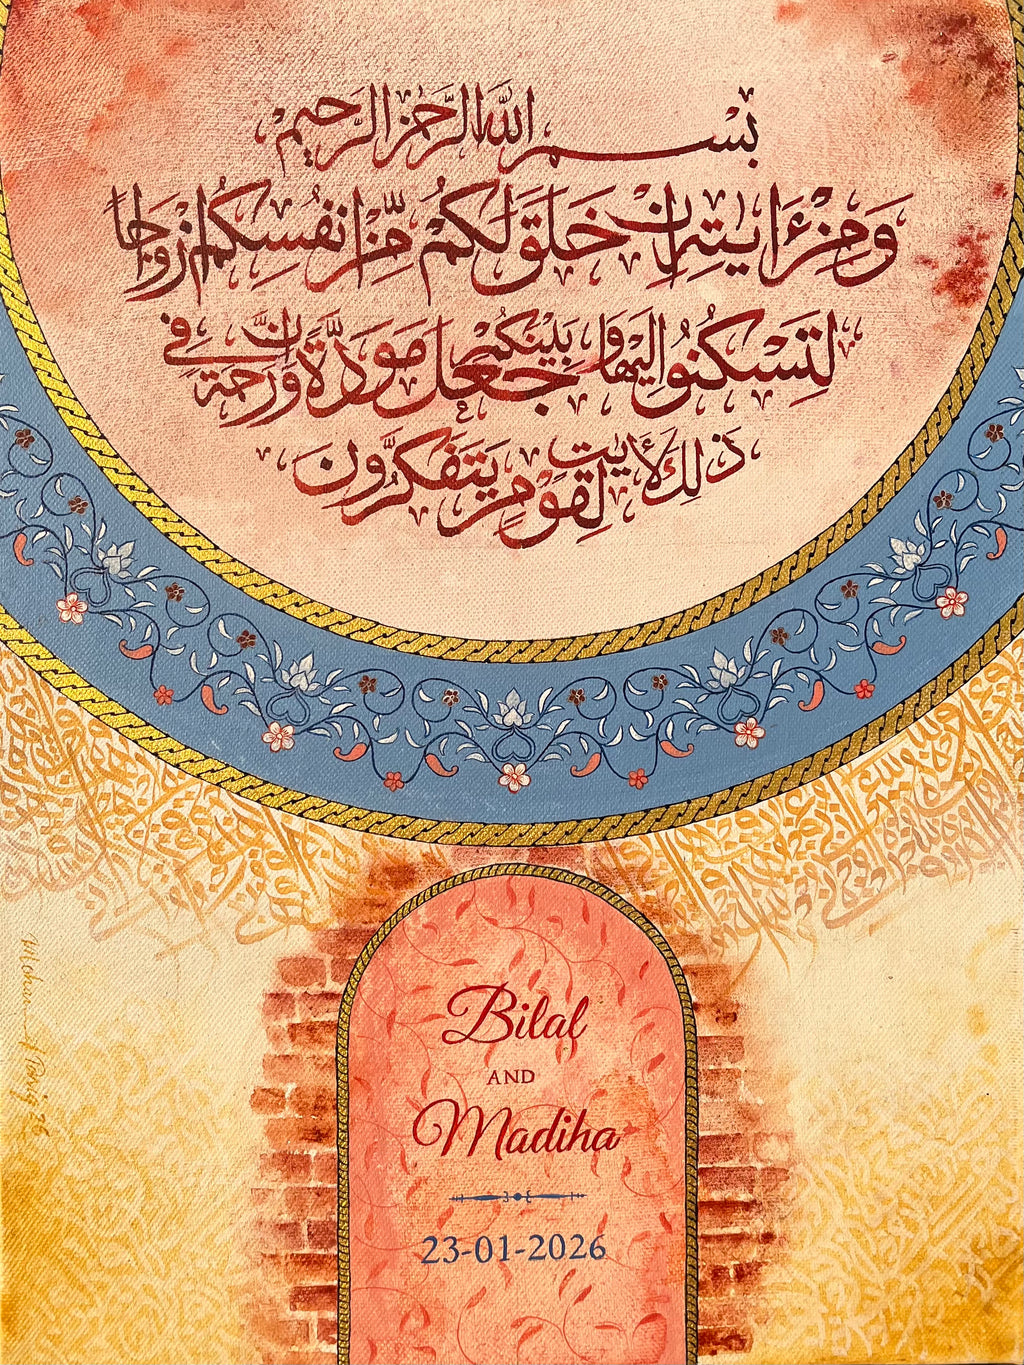 بِسْمِ اللهِ الرَّحْمٰنِ الرَّحِيمِ
وَمِنْ ءَايٰتِهِ اَنْ خَلَقَ لَكُمْ مِّنْ اَنْفُسِكُمْ اَزْوَاجًا
لِتَسْكُنُوا اِلَيْهَا وَجَعَلَ بَيْنَكُمْ مَوَدَّةً وَرَحْمَةً اِنَّ فِي
ذٰلِكَ لَأٰيٰتٍ لِقَوْمٍ يَتَفَكَّرُونَ
Bilal
AND
Madiha
23-01-2026